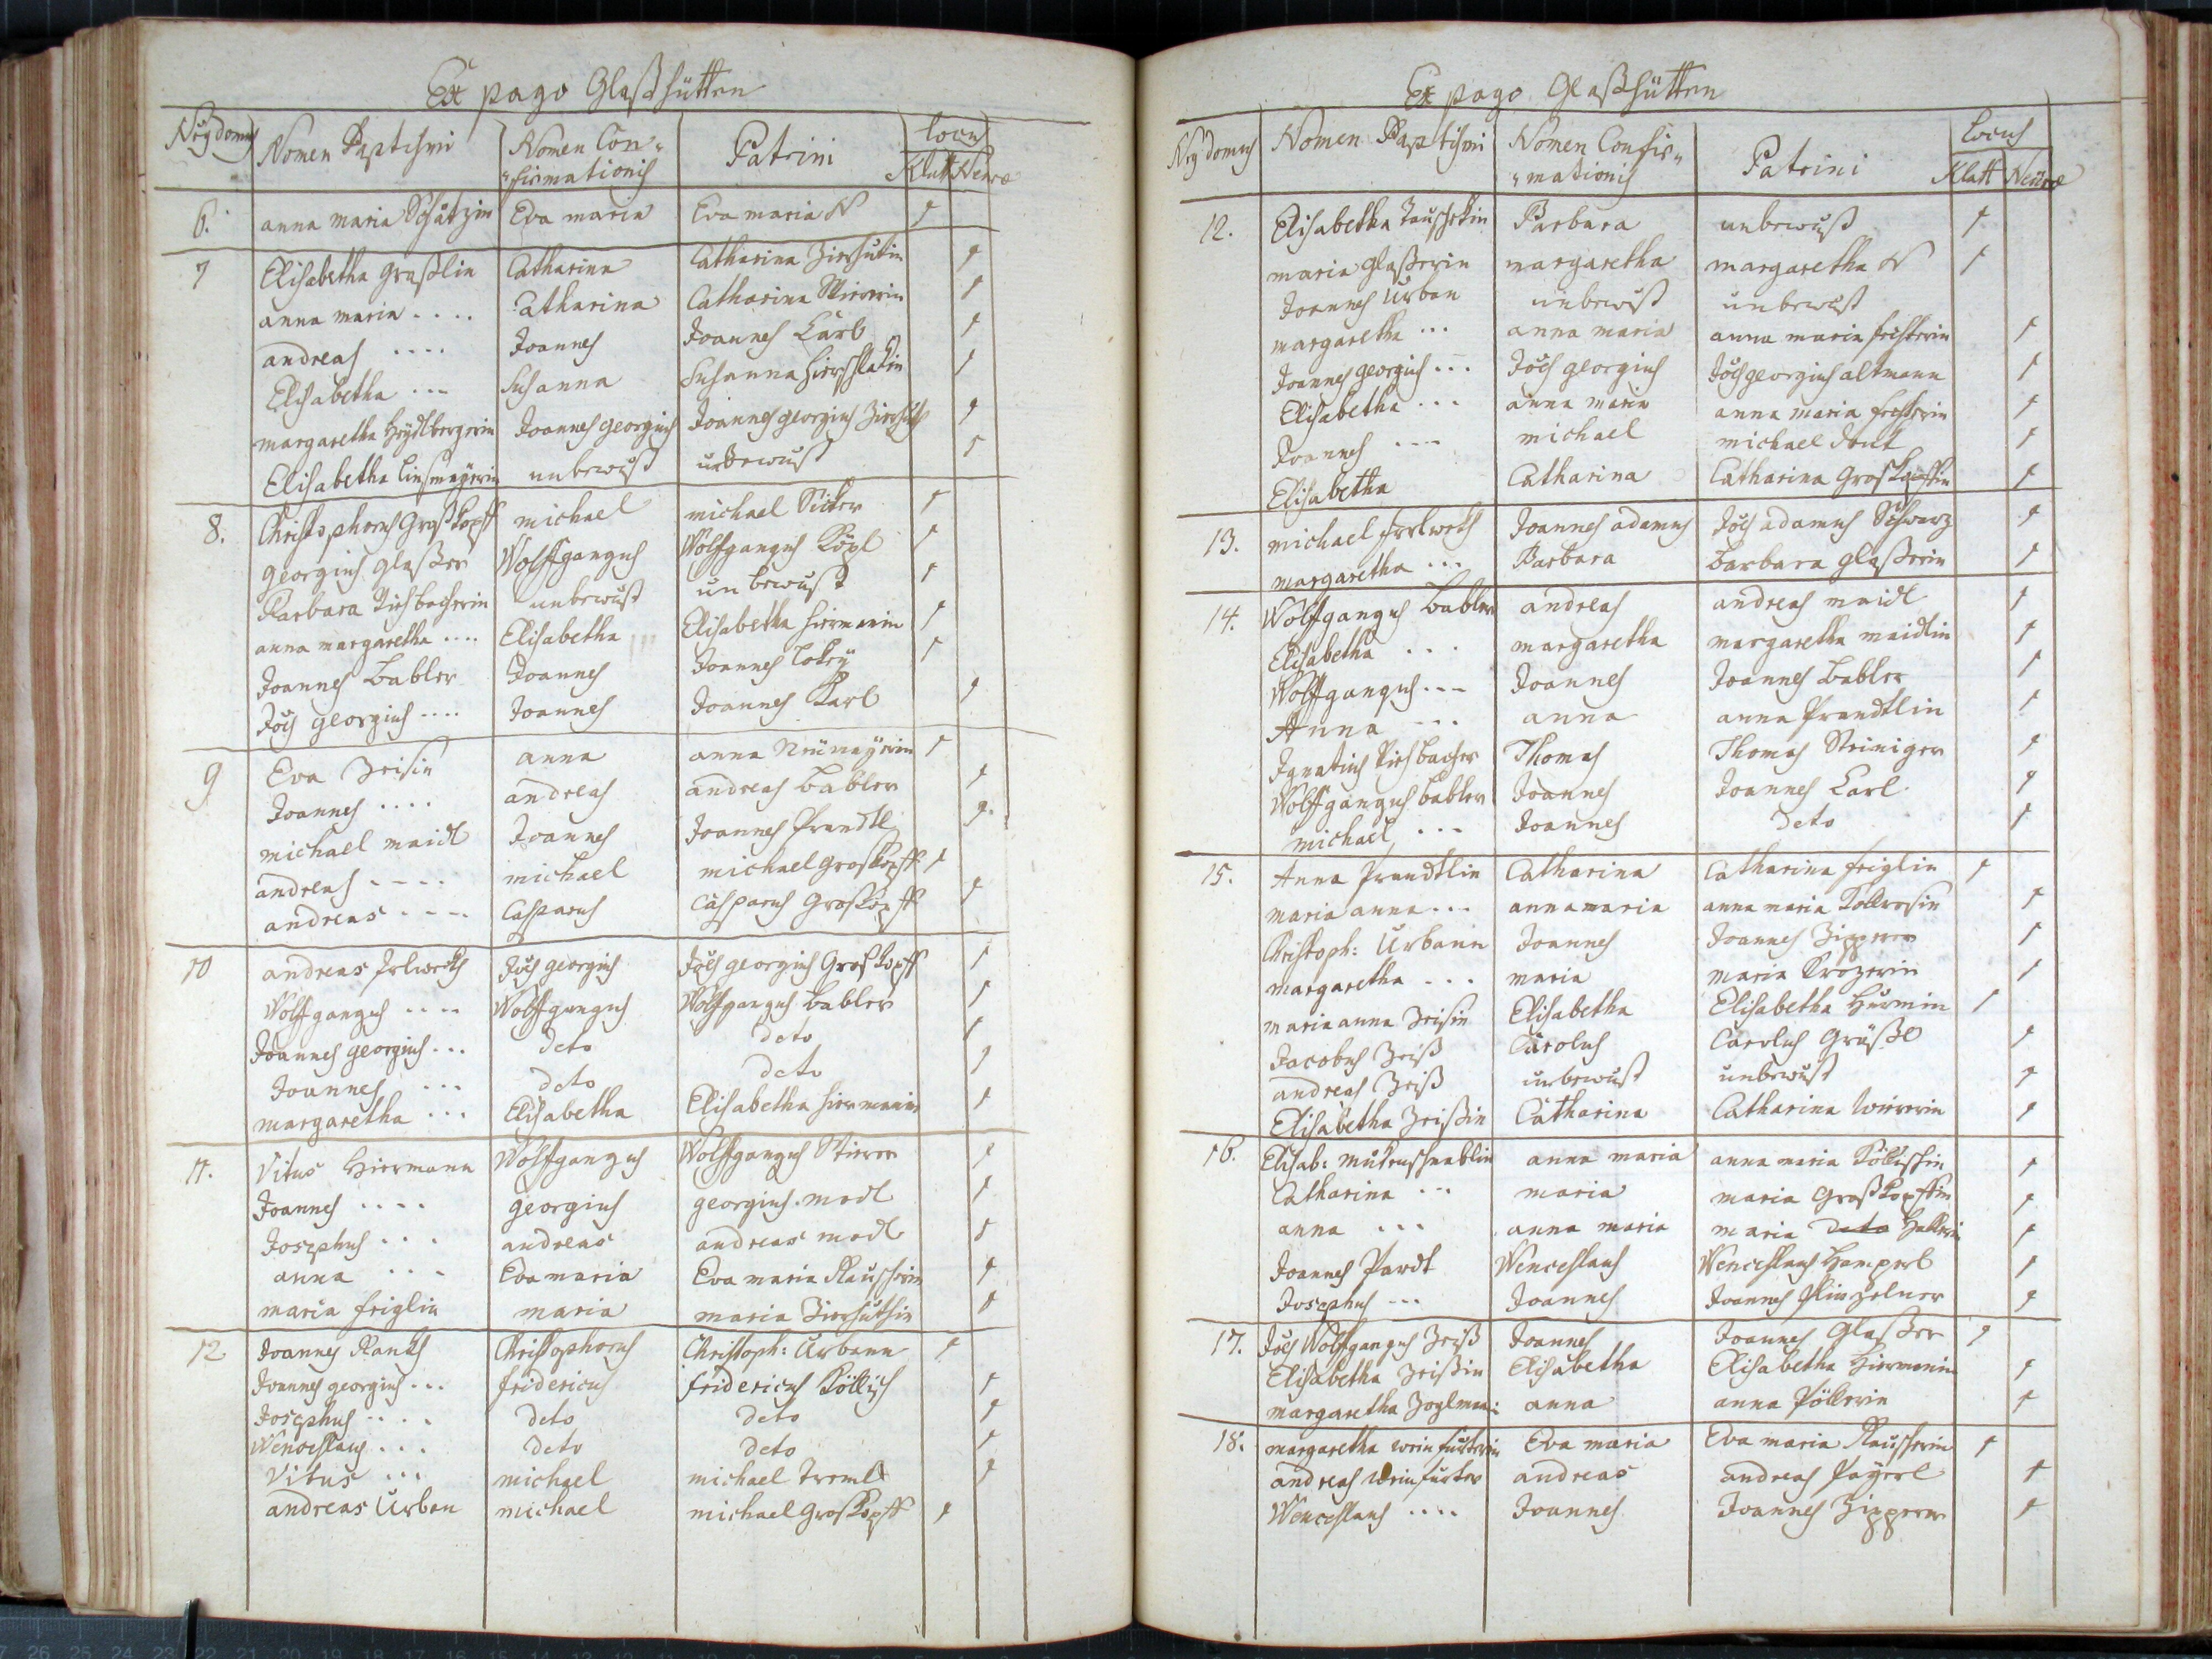 Ex pago Glaßhütten
Nrꝰ domus Nomen Baptismi Nomen Con= Patrini Locus
=firmationis Klatt Neure
6. anna maria Schätzin Eva maria Eva maria N 1
7 Elisabetha Graßlin Catharina Catharina Zierhutin 1
anna maria .... Catharina Catharina Stiererin 1
andreas .... Joannes Joannes Karl 1
Elisabetha ... Susanna Susanna 1
margaretha Heydlbergerin Joannes georgius Joannes georgius Zierhut 1
Elisabetha Linsmayerin unbewust unbewust 1
8. Christophorus Großkopff michael michael 1
georgius glaßer Wolffgangus Wolffgangus Köpl 1
Barbara unbewust unbewust 1
anna margaretha .... Elisabetha Elisabetha Hiermanin 1
Joannes Babler Joannes Joannes 1
Joës georgius .... Joannes Joannes Karl 1
9 Eva Zeisin anna anna Neümayerin 1
Joannes .... andreas andreas Babler 1
michael maidl Joannes Joannes Prandtl 1.
andreas .... michael michael Groskopff 1
andreas .... Casparus Casparus Groskopff 1
10 andreas Irlweckh Joës georgius Joës georgius Groskopff 1
Wolffgangus .... Wolffgangus Wolffgangus Babler 1
Joannes georgius ... deto deto 1
Joannes ... deto deto 1
margaretha ... Elisabetha Elisabetha Hiermanin 1
11. Vitus Hiermann Wolffgangus Wolffgangus Stierer 1
Joannes .... georgius georgius modl 1
Josephus ... andreas andreas modl 1
anna ... Eva maria Eva maria Rauscherin 1
maria friglin maria maria Zierhuthin 1
12 Joannes Rankh Christophorus Christoph: Urbann 1
Joannes georgius ... fridericus fridericus Köllisch 1
Josephus .... deto deto 1
Wenceslaus ... deto deto 1
Vitus ... michael michael Treml 1
andreas Urban michael michael Groskopff 1
Ex pago Glaßhütten
Nrꝰ domus Nomen Baptismi Nomen Confir= Patrini Locus
=mationis Klatt Neüre
12. Elisabetha Barbara unbewust 1
maria glaßerin margaretha margaretha N 1
Joannes Urban unbewust unbewust
margaretha ... anna maria anna maria fristerin 1
Joannes georgius ... Joës georgius Joës georgius altmann 1
Elisabetha ... anna maria anna maria fristerin 1
Joannes ... michael michael 1
Elisabetha Catharina Catharina Groskopffin 1
13. michael Irrlweckh Joannes adamus Joës adamus Schwarz 1
margaretha ... Barbara barbara glaßerin 1
14. Wolffgangus Babler andreas andreas maidl 1
Elisabetha ... margaretha margaretha maidlin 1
Wolffgangus ... Joannes Joannes Babler 1
Anna ... anna anna Prandtlin 1
Ignatius Thomas Thomas Steiniger 1
Wolffgangus babler Joannes Joannes Karl 1
michael ... Joannes deto 1
15. Anna Prandtlin Catharina Catharina friglin 1
maria anna ... anna maria anna maria 1
Christoph: Urbann Joannes Joannes Zipperer 1
margaretha ... maria maria Krozerin 1
maria anna Zeisin Elisabetha Elisabetha 1
Jacobus Zeiß Carolus Carolus Gräßl 1
andreas Zeiß unbewust unbewust 1
Elisabetha Zeißin Catharina Catharina 1
16. Elisab: mukenschnablin anna maria anna maria Köllischin 1
Catharina ... maria maria Großkopffin 1
anna ... anna maria maria deto Hallerin 1
Joannes Pardt Wenceslaus Wenceslaus Hamperl 1
Josephus ... Joannes Joannes Plinzelner 1
17. Joës Wolffgangus Zeiß Joannes Joannes Glaßer 1
Elisabetha Zeißin Elisabetha Elisabetha Hiermanin 1
margaretha Zoglman: anna anna Pöllerin 1
18. margaretha weinfurterin Eva maria Eva maria Rauscherin 1
andreas Weinfurter andreas andreas Payerl 1
Wenceslaus .... Joannes Joannes Zipperer 1